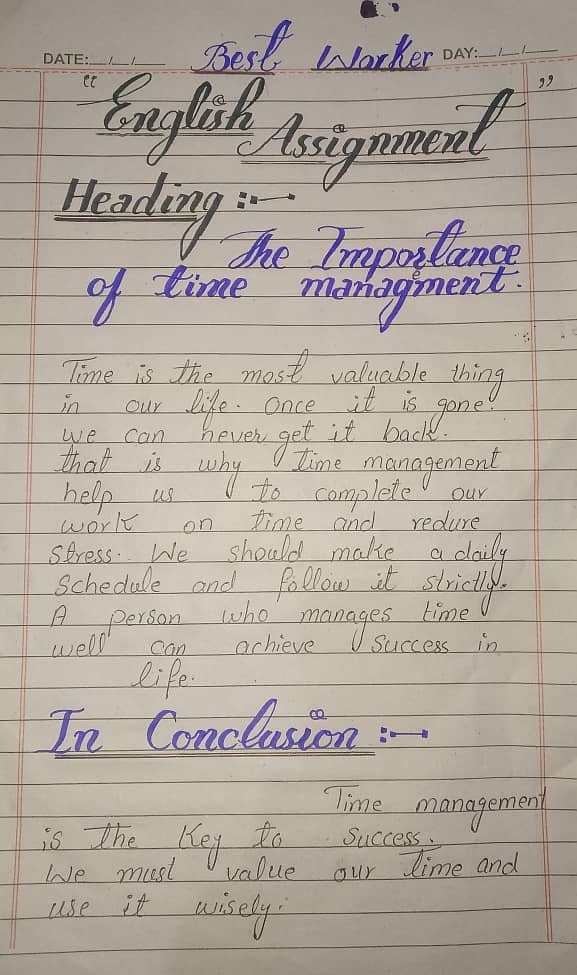 DATE:__/__/__ Best Worker DAY:__/__/__
"English Assignment"
Heading :-
The Importance
of time managment.
Time is the most valuable thing
in our life. Once it is gone.
we can never get it back.
that is why time management
help us to complete our
work on time and redure
stress. We should make a daily
Schedule and follow it strictly.
A person who manages time
well can achieve Success in
life.
In Conclusion :-
Time management
is the Key to Success.
We must value our Time and
use it wisely.